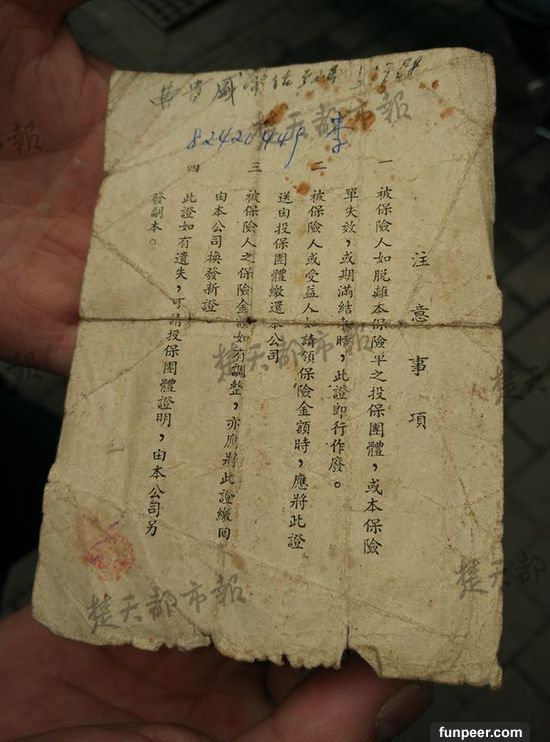 82420449 李
注意事項
一 被保險人如脫離本保險單之投保團體，或本保險
單失效，或期滿結束時，此證即行作廢。
二 被保險人或受益人如請領保險金額時，應將此證
送由投保團體繳還本公司
三 被保險人之保險金額如有調整，亦應將此證繳回
由本公司換發新證
四 此證如有遺失，可請投保團體證明，由本公司另
發副本。
楚天都市報
楚天都市報
楚天都市報
楚天都市報
funpeer.com